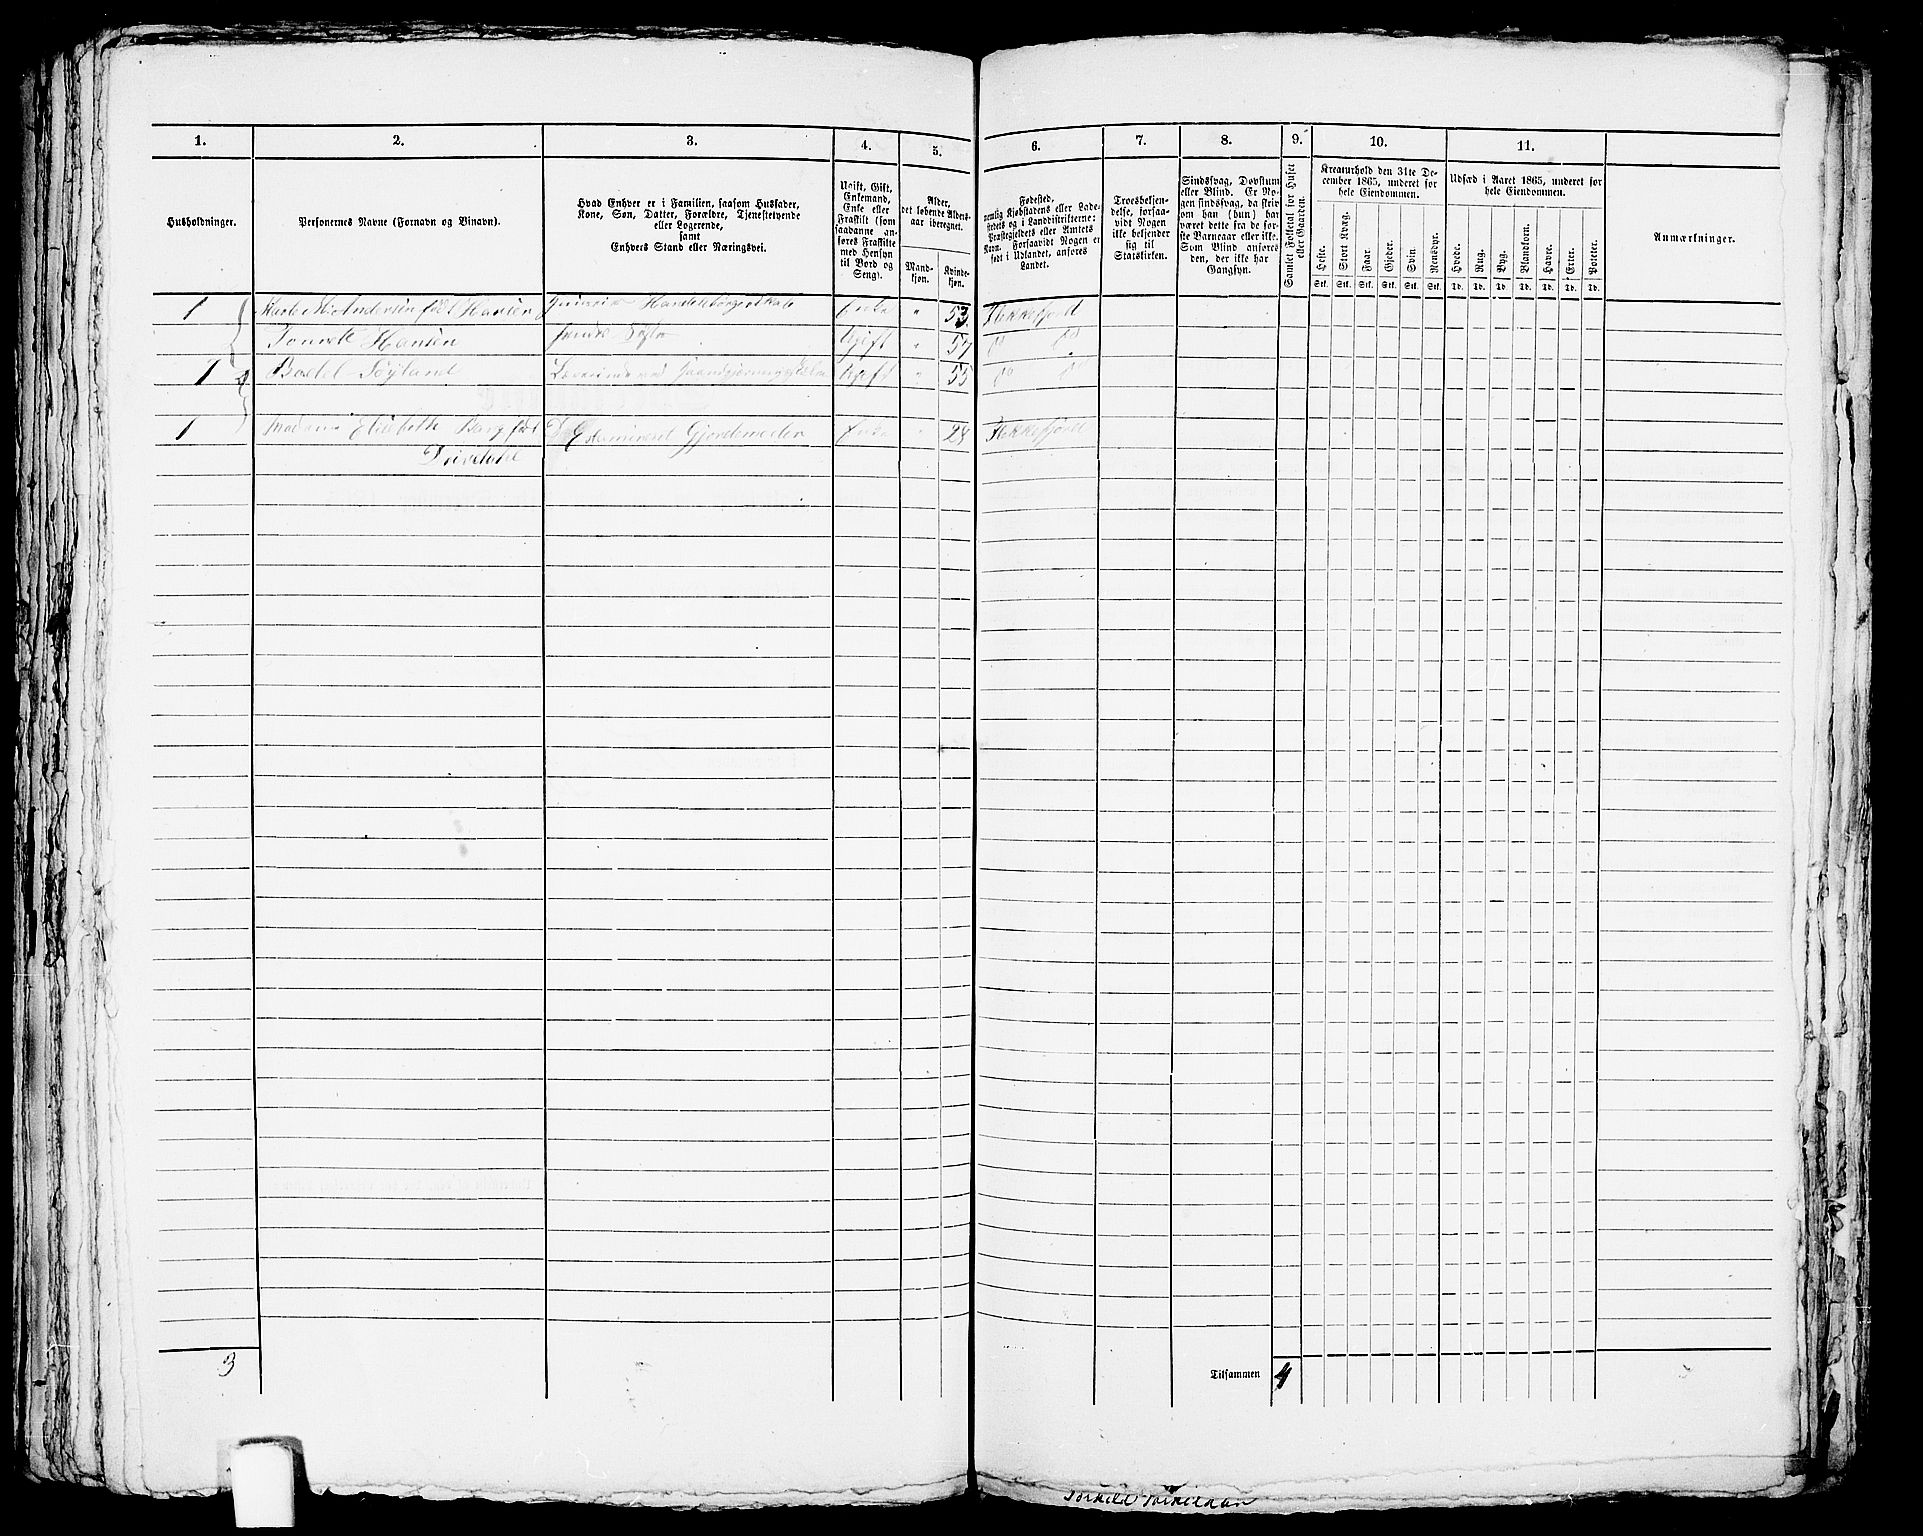 1. 2. 3. 4. 5. 6. 7. 8. 9. 10. 11.
Husholdninger.
Personernes Navne (Fornavn og Binavn).
Hvad Enhver er i Familien, saasom Husfader,
Kone, Søn, Datter, Forældre, Tjenestetyende
eller Logerende,
samt
Enhvers Stand eller Næringsvei.
Ugift, Gift,
Enkemand,
Enke eller
Fraskilt (som
saadanne an-
føres Fraskilte
med Hensyn
til Bord og
Seng).
Alder,
det løbende Alders-
aar iberegnet.
Mand-
kjøn.
Kvinde-
kjøn.
Fødested,
nemlig Kjøbstadens eller Lade-
stedets og i Landdistrikterne:
Præstegjeldets eller Amtets
Navn. Forsaavidt Nogen er
født i Udlandet, anføres
Landet.
Troesbekjen-
delse, forsaa-
vidt Nogen
ikke bekjender
sig til
Statskirken.
Sindssvag, Døvstum
eller Blind. Er No-
gen sindssvag, da skriv
om han (hun) har
været dette fra de før-
ste Barneaar eller ikke.
Som Blind anføres
den, der ikke har
Gangsyn.
Samlet Folketal for Huset
eller Gaarden.
Kreaturhold den 31te De-
cember 1865, underet for
hele Eiendommen.
Heste. Stort Kvæg. Faar. Gjeder. Svin. Rensdyr.
Stk. Stk. Stk. Stk. Stk. Stk.
Udsæd i Aaret 1865, underet for
hele Eiendommen.
Hvede. Rug. Byg. Blandkorn. Havre. Erter. Poteter.
Td. Td. Td. Td. Td. Td. Td.
Anmærkninger.
1 Andersen født Hansen Handelsborgerskab Enke " 53 Flekkefjord
Tonnette Hansen hendes Søster Ugift " 57 do do
1 Bodel Søyland Ugift " 55 do do
1 Madame Elisabeth Berg født Examineret Gjordemoder Enke " 28 Flekkefjord
3
Tilsammen 4